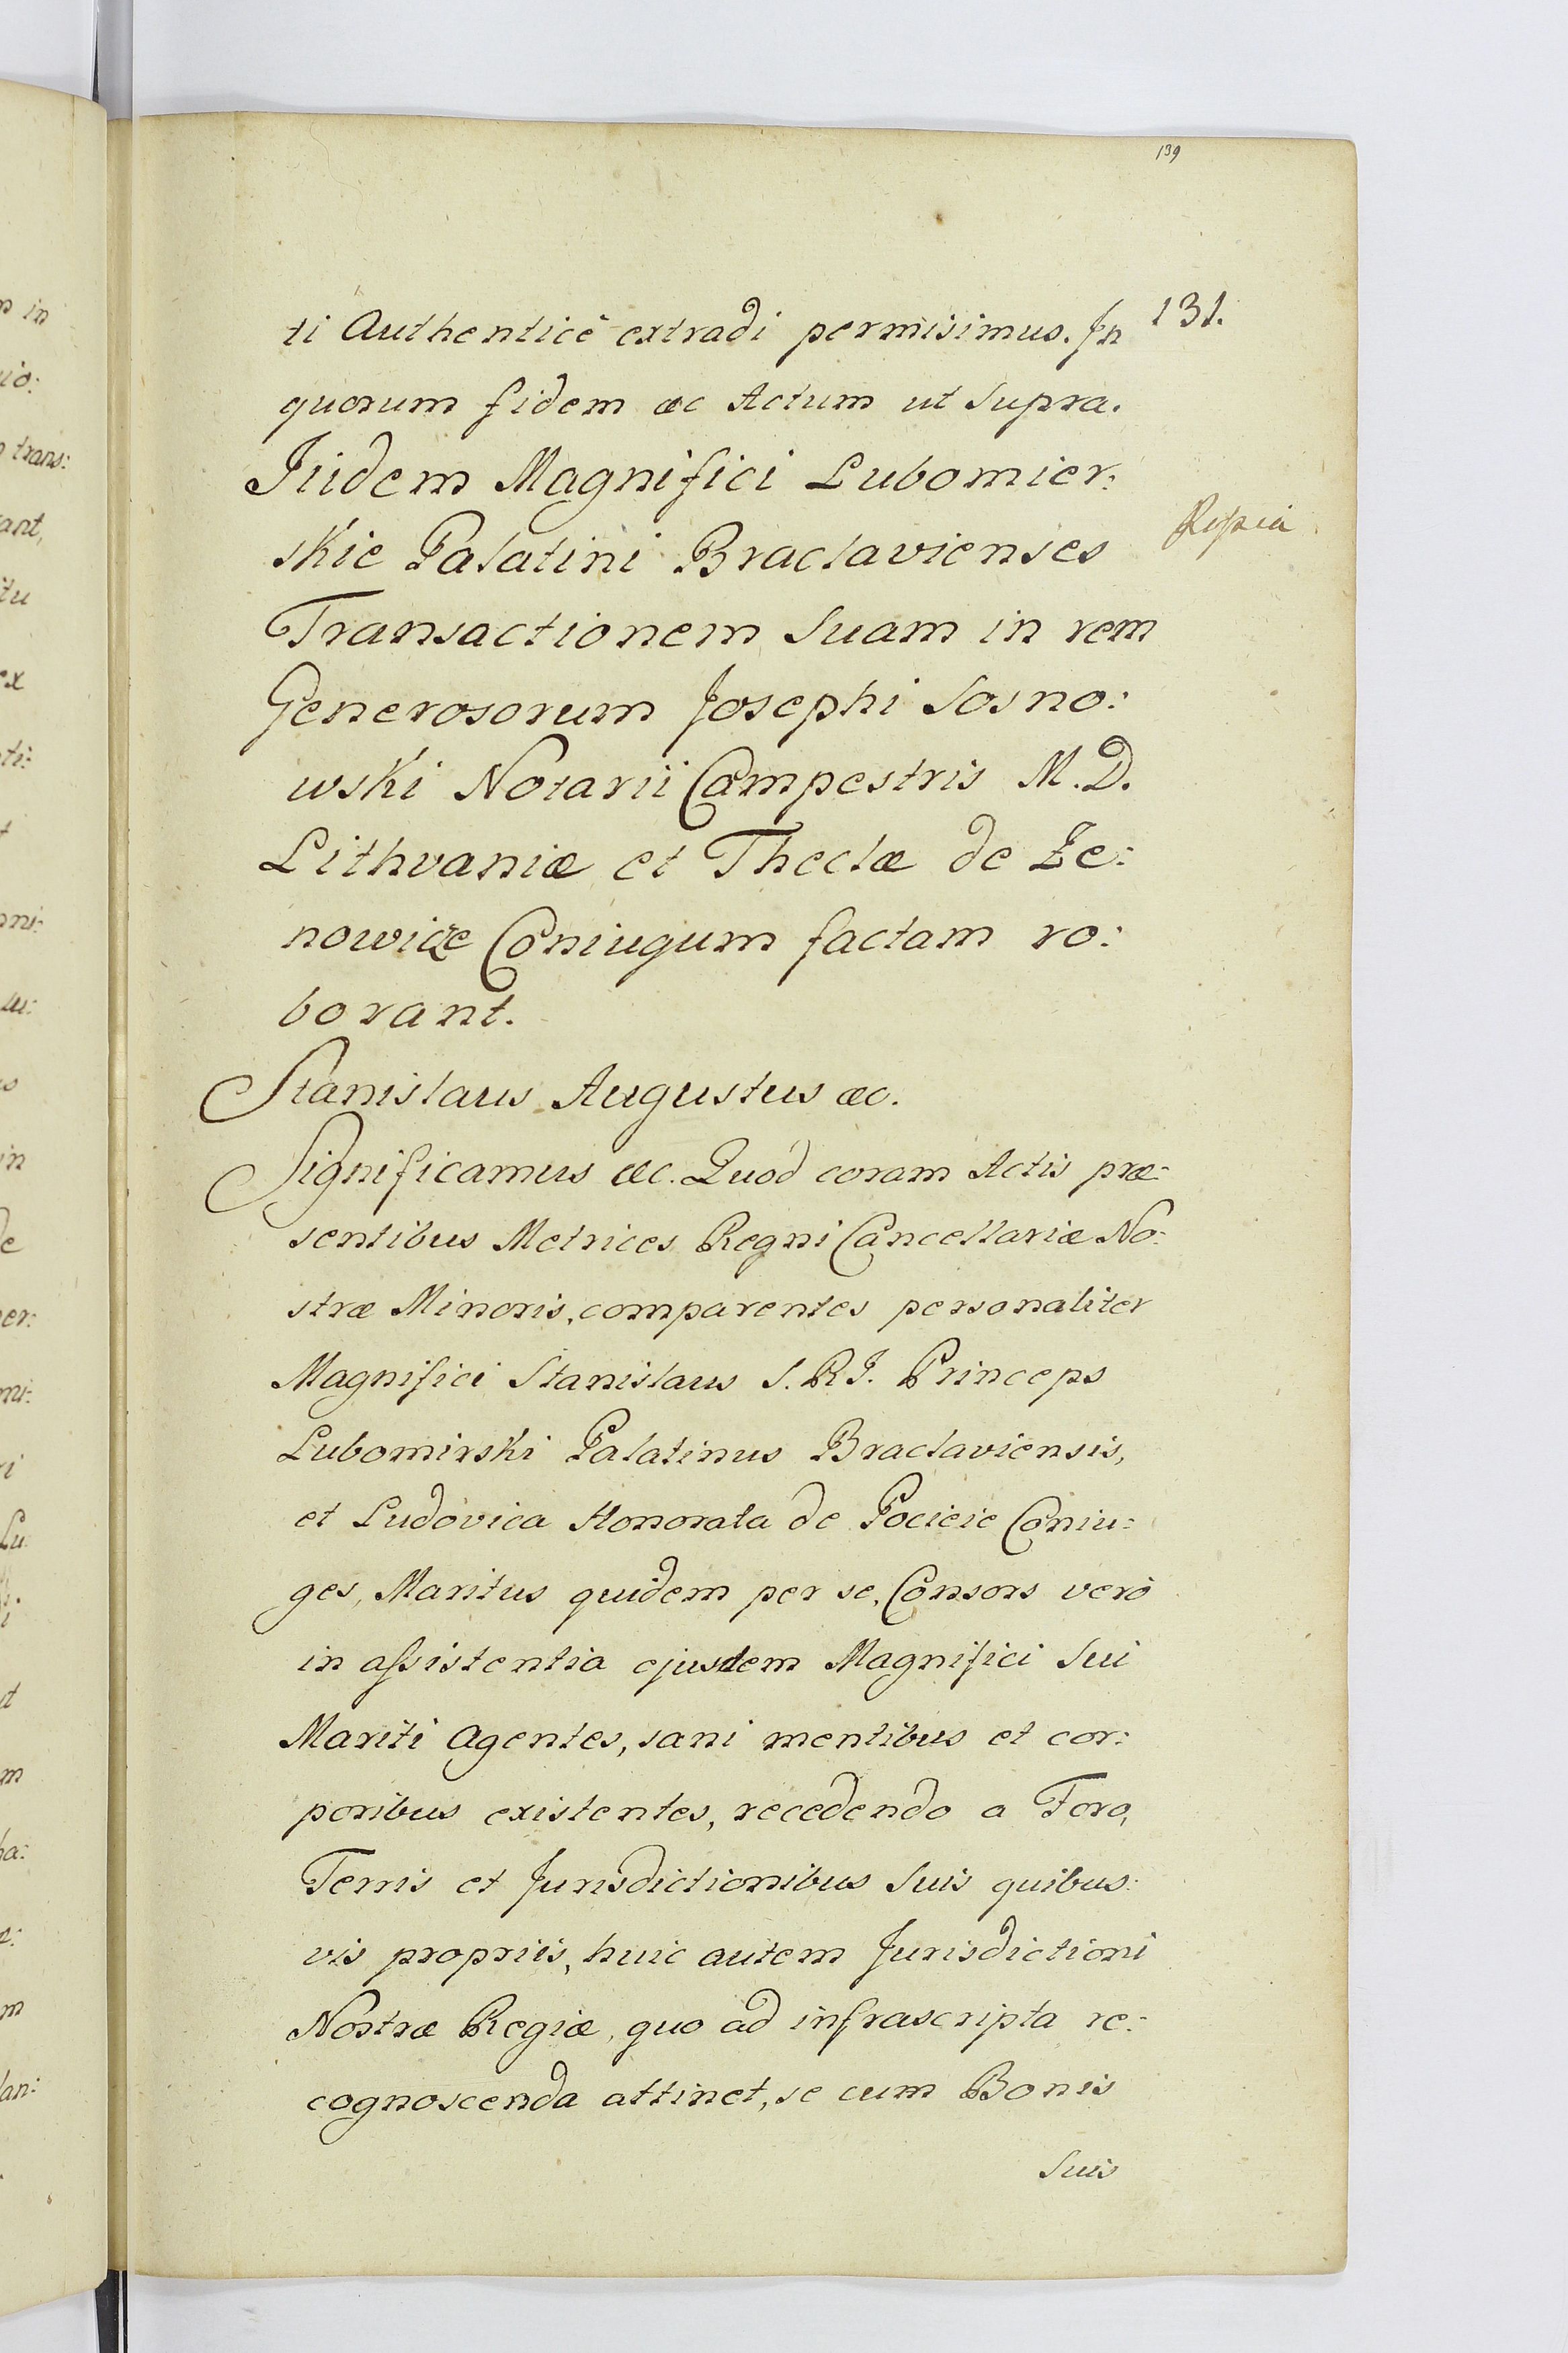 139
131.
ti Authenticè extradi permisimus. Jn
quorum fidem &c Actum ut Supra.
Jiidem Magnifici Lubomier:
skie Palatini Braclavienses
Transactionem Suam in rem
Generosorum Josephi Sosno:
wski Notarii Campestris M.D.
Lithvaniæ et Theclæ de Ze:
nowicze Coniugum factam ro:
borant.
Stanislaus Augustus &c.
Significamus &c. Quòd coram Actis præ:
sentibus Metrices Regni Cancellariæ No:
stræ Minoris, comparentes personaliter
Magnifici Stanislaus S.R.J. Princeps
Lubomirski Palatinus Braclaviensis,
et Ludovica Honorata de Pocieie Coniu:
ges, Maritus quidem per se, Consors verò
in assistentia ejusdem Magnifici Sui
Mariti agentes, sani mentibus et cor:
poribus existentes, recedendo a Foro,
Terris et Jurisdictionibus Suis quibus:
vis propriis, huic autem Jurisdictioni
Nostræ Regiæ, quo ad infrascripta re:
cognoscenda attinet, se cum Bonis
Suis